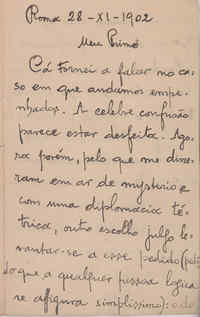 Roma 28-XI-1902
Meu Primo
Cá tornei a falar no ca-
so em que andamos empe-
nhados. A celebre confusão
parece estar desfeita. Ago-
ra porém, pelo que me disse-
ram em ar de mysterio e
com uma diplomacia té-
trica, outro escolho julgo le-
vantar-se a esse pedido (pelo
do que a qualquer pessoa logica
se afigura simplissimo):